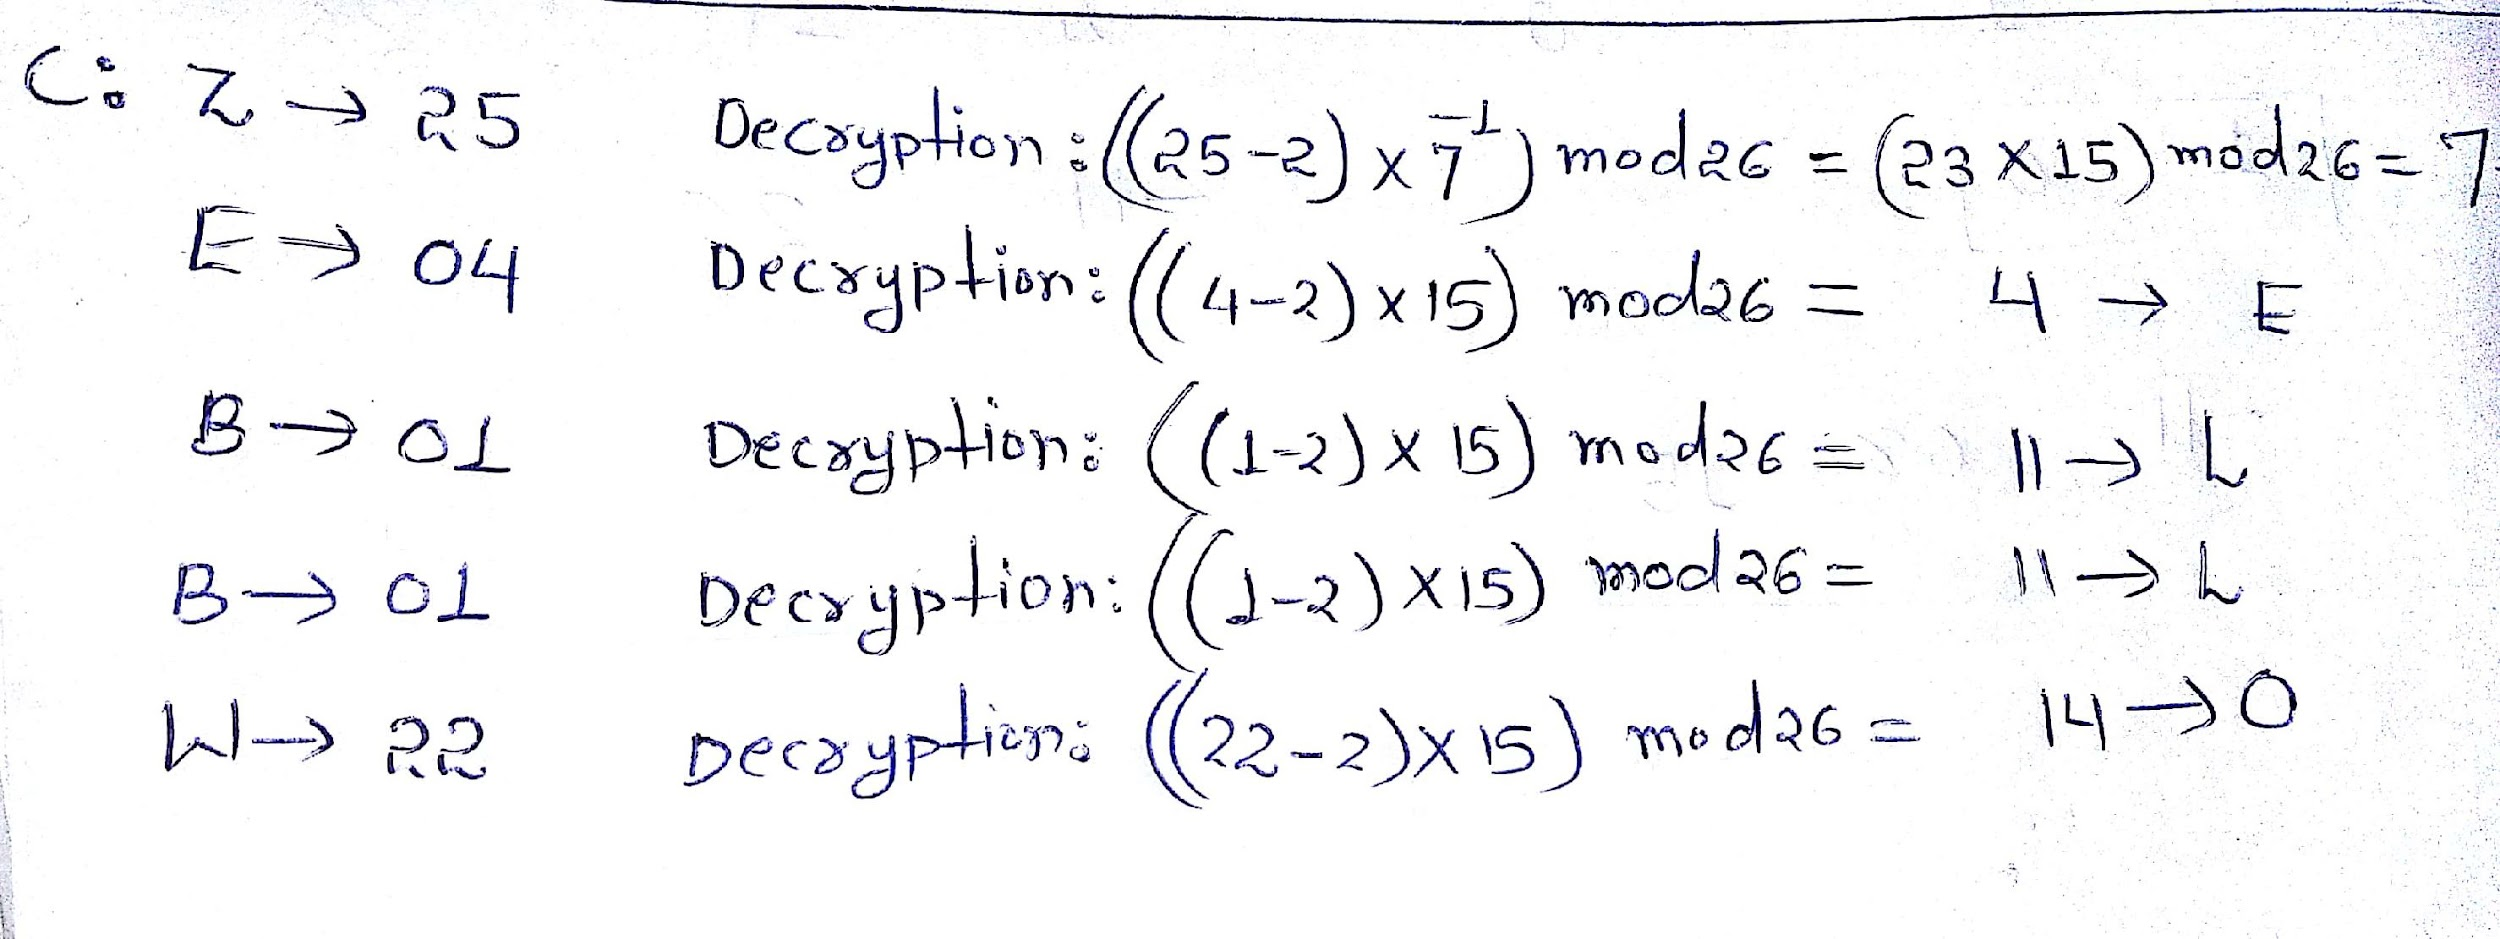 C: Z → 25 Decryption: ((25-2) × 7⁻¹) mod 26 = (23 × 15) mod 26 = 7
E → 04 Decryption: ((4-2) × 15) mod 26 = 4 → E
B → 01 Decryption: ((1-2) × 15) mod 26 = 11 → L
B → 01 Decryption: ((1-2) × 15) mod 26 = 11 → L
W → 22 Decryption: ((22-2) × 15) mod 26 = 14 → O